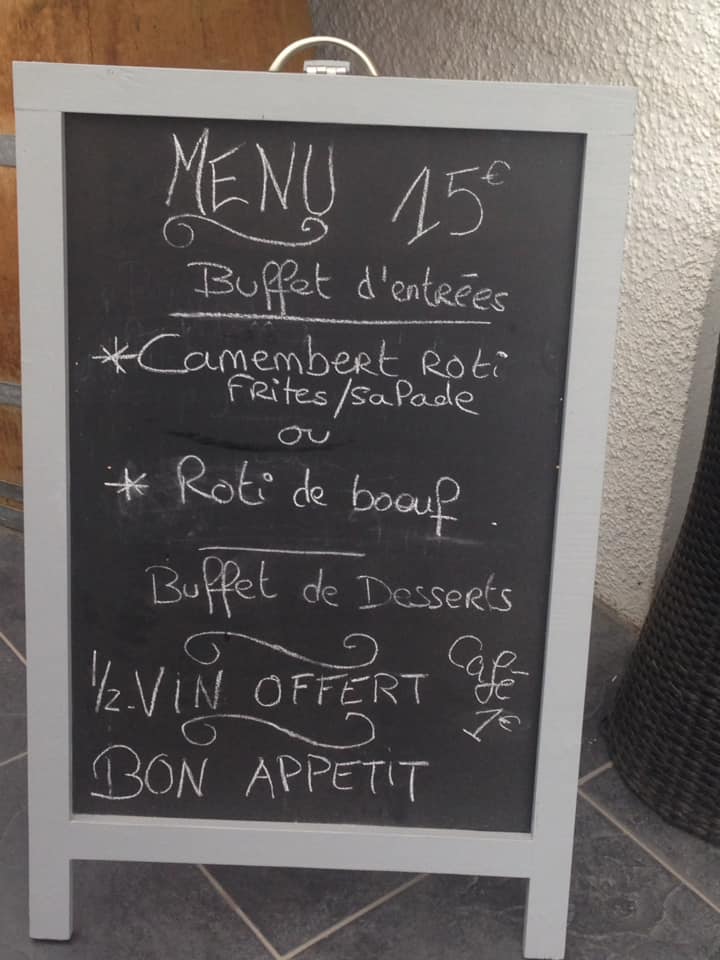 MENU 15€
Buffet d'entrées
*Camembert Roti
FRites/saPade
ou
* Roti de boouf.
Buffet de Desserts
1/2-ViN OFFERT
Caf-
fé
1€
BON APPETIT